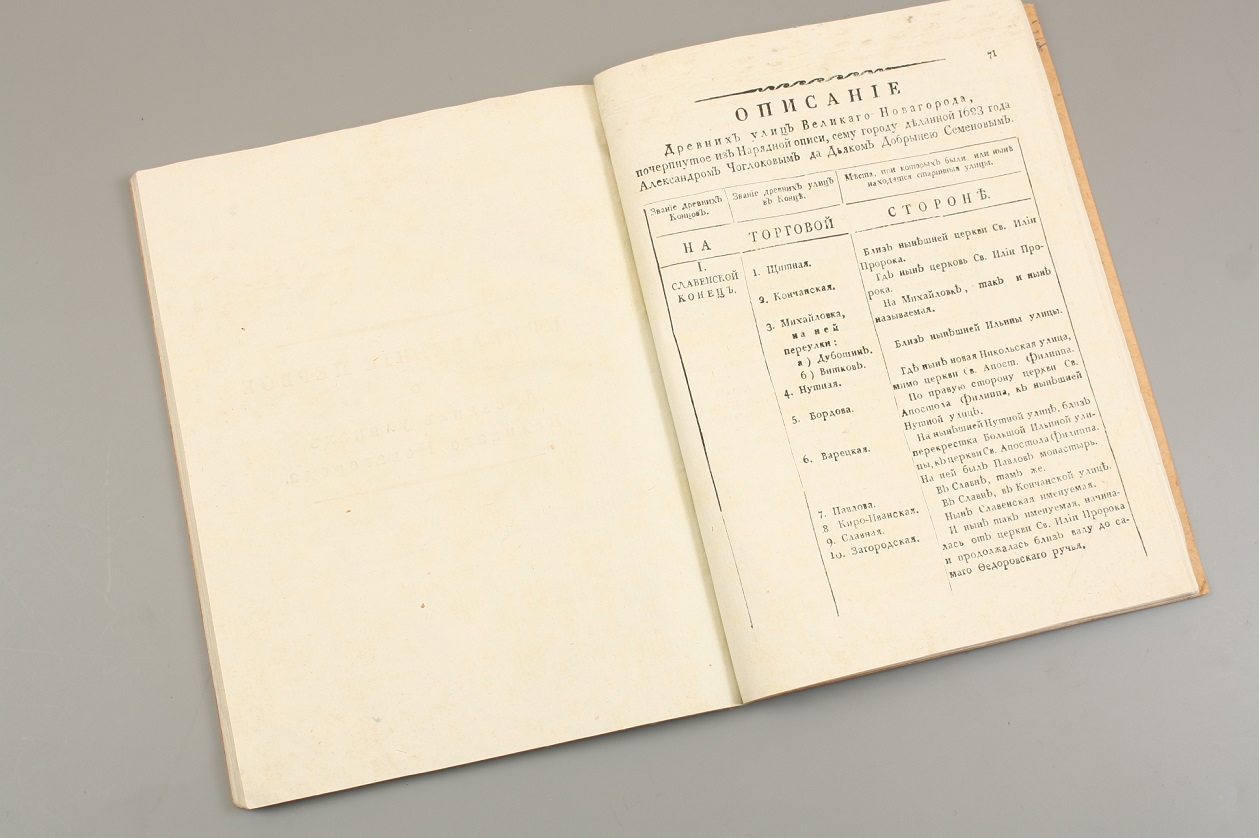 71
ОПИСАНІЕ
Древнихъ улицъ Великаго Новагорода,
почерпнутое изъ Нарядной описи, сему городу дѣланной 1623 года
Александромъ Чоглоковымъ да Дьякомъ Добрынею Семеновымъ.
Званіе древнихъ
Концовъ.
Званіе древнихъ улицъ
въ Концѣ.
Мѣста, при которыхъ были или нынѣ
находятся старинныя улицы.
НА ТОРГОВОЙ СТОРОНѢ.
I.
СЛАВЕНСКОЙ
КОНЕЦЪ.
1. Щитная.
2. Кончанская.
3. Михайловка,
на ней
переулки:
а) Дубошинъ.
б) Витковъ.
4. Нутная.
5. Бордова.
6. Варецкая.
7. Павлова.
8 Киро-Иванская.
9. Славная.
10. Загородская.
Близь нынѣшней церкви Св. Иліи
Пророка.
Гдѣ нынѣ церковь Св. Иліи Про-
рока.
На Михайловкѣ, такъ и нынѣ
называемая.
Близь нынѣшней Ильины улицы.
Гдѣ нынѣ новая Никольская улица,
мимо церкви Св. Апост. Филиппа.
По правую сторону церкви Св.
Апостола Филиппа, къ нынѣшней
Нутной улицѣ.
На нынѣшней Нутной улицѣ, близь
перекрестка Большой Ильиной ули-
цы, къ церкви Св. Апостола Филиппа.
На ней былъ Павловъ монастырь.
Въ Славнѣ, тамъ же.
Въ Славнѣ, въ Кончанской улицѣ.
Нынѣ Славенская именуемая.
И нынѣ такъ именуемая, начина-
лась отъ церкви Св. Иліи Пророка
и продолжалась близь валу до са-
маго Ѳедоровскаго ручья.